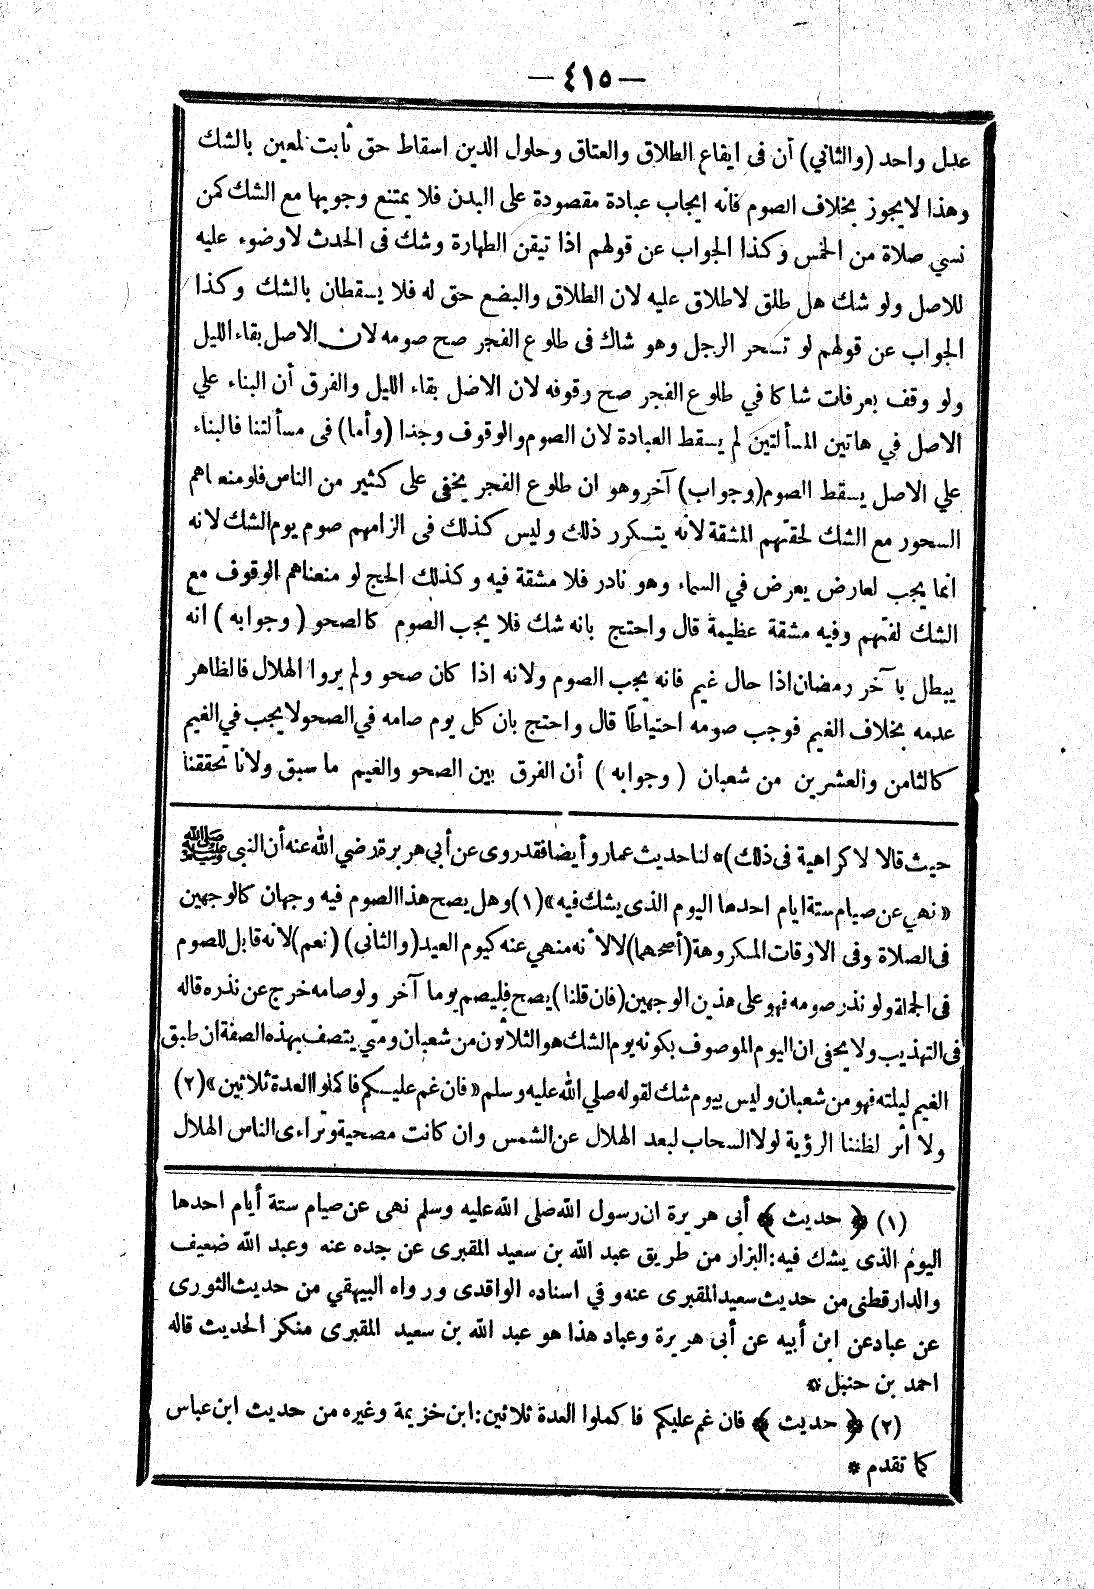 — ٤١٥ —
عدل واحد (والثاني) أن فى ايقاع الطلاق والعتاق وحلول الدين اسقاط حق ثابت لمعين بالشك
وهذا لايجوز بخلاف الصوم فانه ايجاب عبادة مقصودة على البدن فلا يمتنع وجوبها مع الشك كمن
نسي صلاة من الخمس وكذا الجواب عن قولهم اذا تيقن الطهارة وشك فى الحدث لاوضوء عليه
للاصل ولو شك هل طلق لاطلاق عليه لان الطلاق والبضع حق له فلا يسقطان بالشك وكذا
الجواب عن قولهم لو تسحر الرجل وهو شاك فى طلوع الفجر صح صومه لان الاصل بقاء الليل
ولو وقف بعرفات شاكا في طلوع الفجر صح وقوفه لان الاصل بقاء الليل والفرق أن البناء علي
الاصل في هاتين المسألتين لم يسقط العبادة لان الصوم والوقوف وجدا (وأما) فى مسألتنا فالبناء
علي الاصل يسقط الصوم (وجواب) آخر وهو ان طلوع الفجر يخفى على كثير من الناس فلو منعناهم
السحور مع الشك لحقتهم المشقة لانه يتكرر ذلك وليس كذلك فى الزامهم صوم يوم الشك لانه
انما يجب لعارض يعرض في السماء وهو نادر فلا مشقة فيه وكذلك الحج لو منعناهم الوقوف مع
الشك لفتهم وفيه مشقة عظيمة قال واحتج بانه شك فلا يجب الصوم كالصحو (وجوابه) انه
يبطل بآخر رمضان اذا حال غيم فانه يجب الصوم ولانه اذا كان صحو ولم يروا الهلال فالظاهر
عدمه بخلاف الغيم فوجب صومه احتياطًا قال واحتج بان كل يوم صامه في الصحو لايجب في الغيم
كالثامن والعشرين من شعبان (وجوابه) أن الفرق بين الصحو والغيم ما سبق ولانا تحققنا
حيث قالا لا كراهية فى ذلك) * لنا حديث عمار وأيضا فقد روى عن أبي هريرة رضي الله عنه أن النبى ﷺ
« نهي عن صيام ستة ايام احدها اليوم الذى يشك فيه » (١) وهل يصح هذا الصوم فيه وجهان كالوجهين
فى الصلاة وفى الاوقات المكروهة (أصحهما) لا لأنه منهي عنه كيوم العيد (والثانى) (نعم) لانه قابل للصوم
فى الجملة ولو نذر صومه فهو على هذين الوجهين (فان قلنا) يصح فليصم يوما آخر ولو صامه خرج عن نذره قاله
فى التهذيب ولا يخفى ان اليوم الموصوف بكونه يوم الشك هو الثلاثون من شعبان ومتي يتصف بهذه الصفة ان طبق
الغيم ليلته فهو من شعبان وليس بيوم شك لقوله صلي الله عليه وسلم « فان غم عليكم فاكملوا العدة ثلاثين » (٢)
ولا اثر لظننا الرؤية لولا السحاب لبعد الهلال عن الشمس وان كانت مصحية وتراءى الناس الهلال
(١) ﴿ حديث ﴾ أبى هريرة ان رسول الله صلى الله عليه وسلم نهى عن صيام ستة أيام احدها
اليوم الذى يشك فيه : البزار من طريق عبد الله بن سعيد المقبرى عن جده عنه وعبد الله ضعيف
والدارقطنى من حديث سعيد المقبرى عنه وفي اسناده الواقدى ورواه البيهقي من حديث الثورى
عن عباد عن ابن أبيه عن أبى هريرة وعباد هذا هو عبد الله بن سعيد المقبرى منكر الحديث قاله
احمد بن حنبل *
(٢) ﴿ حديث ﴾ فان غم عليكم فاكملوا العدة ثلاثين : ابن خزيمة وغيره من حديث ابن عباس
كما تقدم *